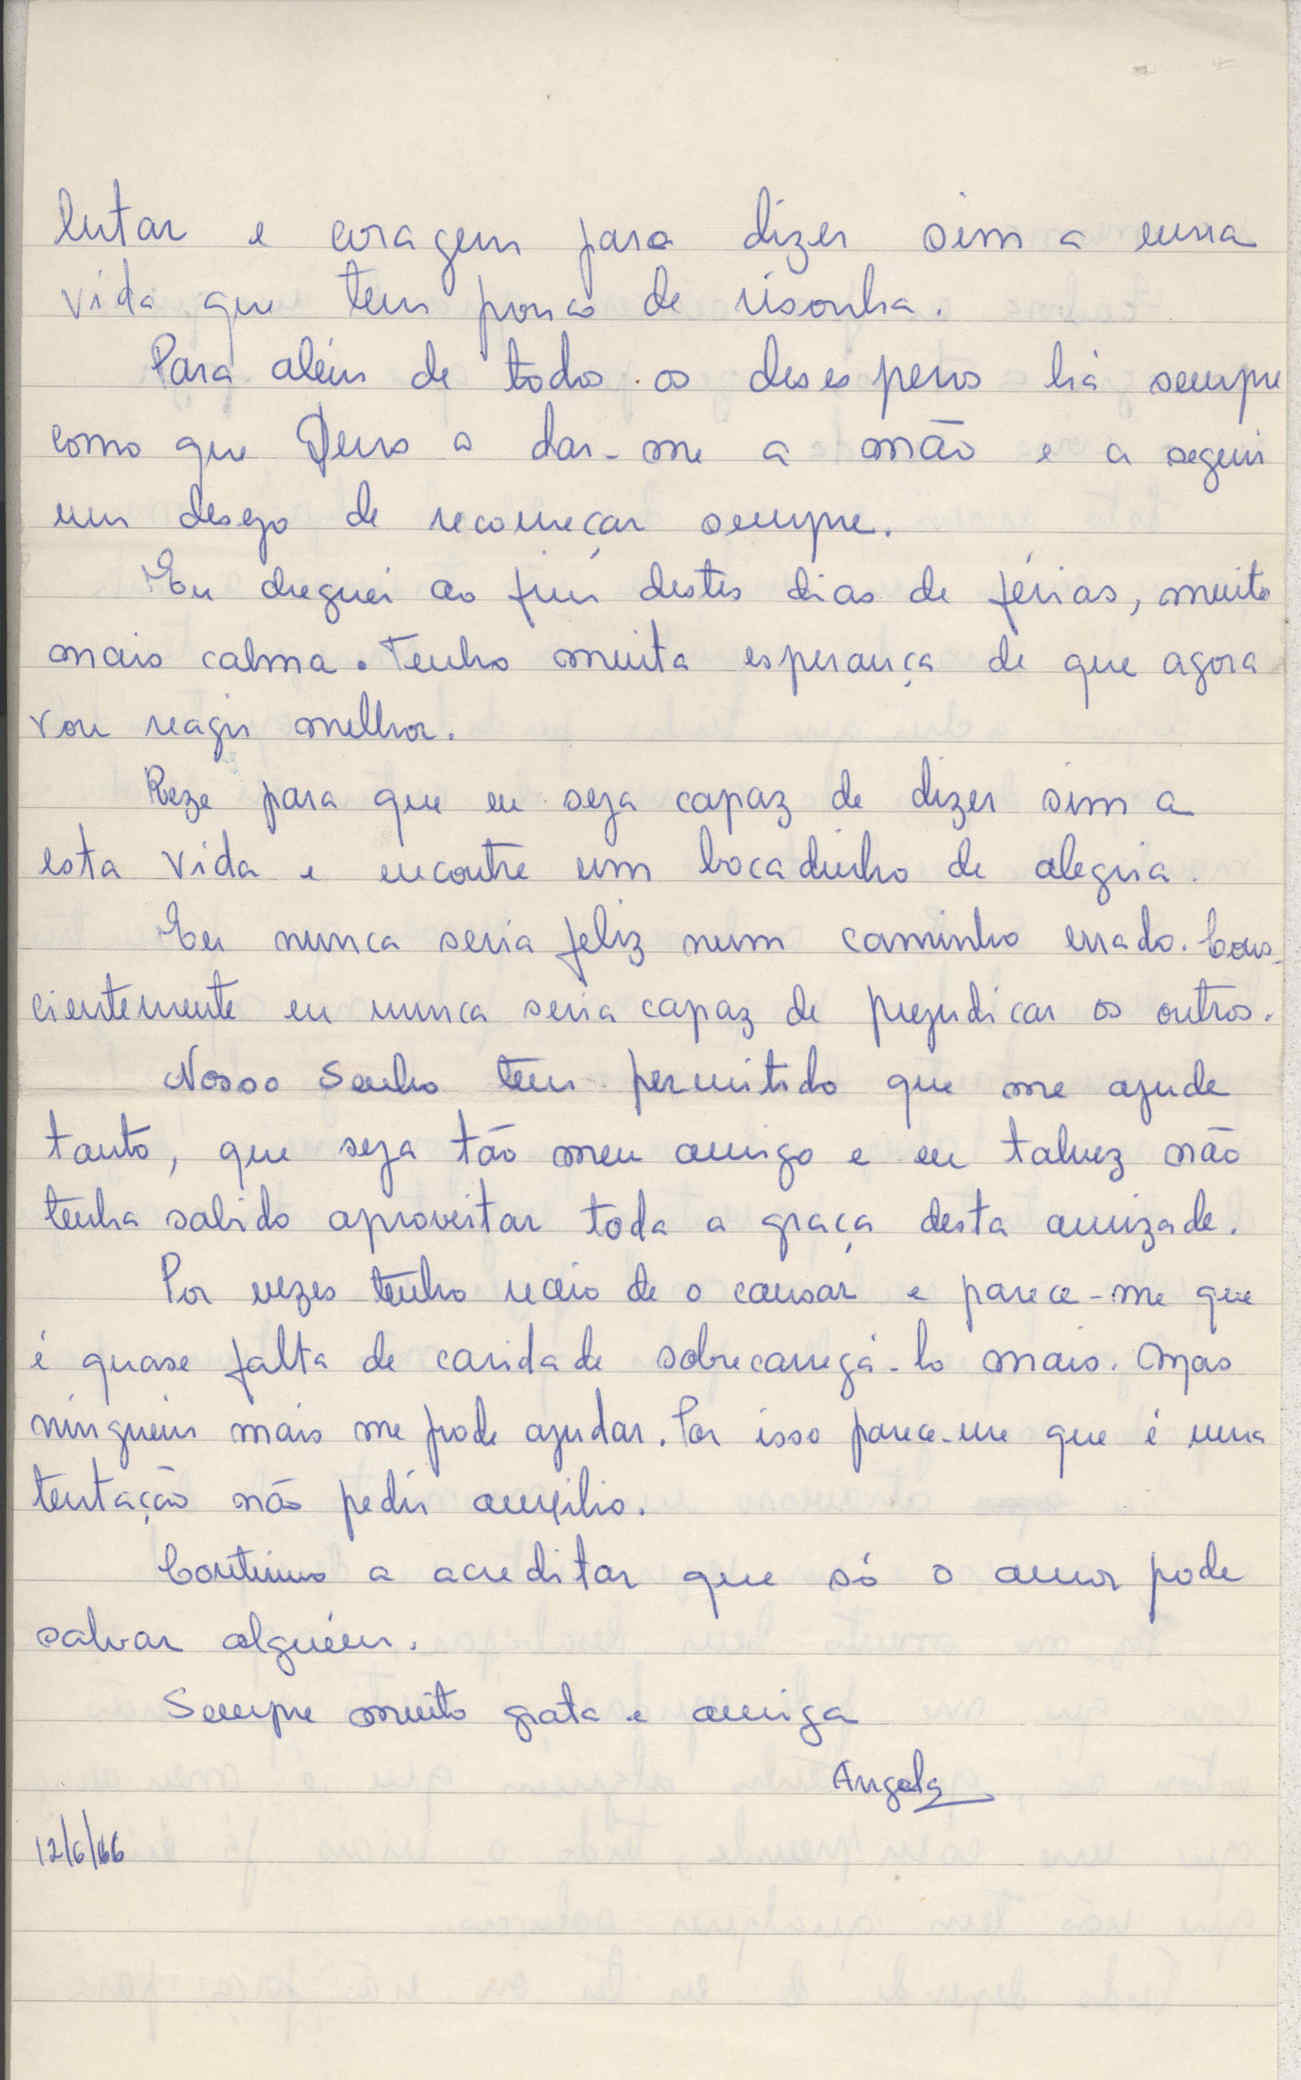 lutar e coragem para dizer sim a uma
vida que tem pouco de risonha.
Para além de todos os desesperos há sempre
como que Deus a dar-me a mão e a seguir
um desejo de recomeçar sempre.
Eu cheguei ao fim destes dias de férias, muito
mais calma. Tenho muita esperança de que agora
vou reagir melhor.
Reze para que eu seja capaz de dizer sim a
esta vida e encontre um bocadinho de alegria.
Eu nunca seria feliz num caminho errado. Cons-
cientemente eu nunca seria capaz de prejudicar os outros.
Nosso Senho tem permitido que me ajude
tanto, que seja tão meu amigo e eu talvez não
tenha sabido aproveitar toda a graça desta amizade.
Por vezes tenho receio de o cansar e parece-me que
é quase falta de caridade sobrecarregá-lo mais. Mas
ninguém mais me pode ajudar. Por isso parece-me que é uma
tentação não pedir auxílio.
Continuo a acreditar que só o amor pode
salvar alguém.
Sempre muito grata e amiga
Angela
12/6/66